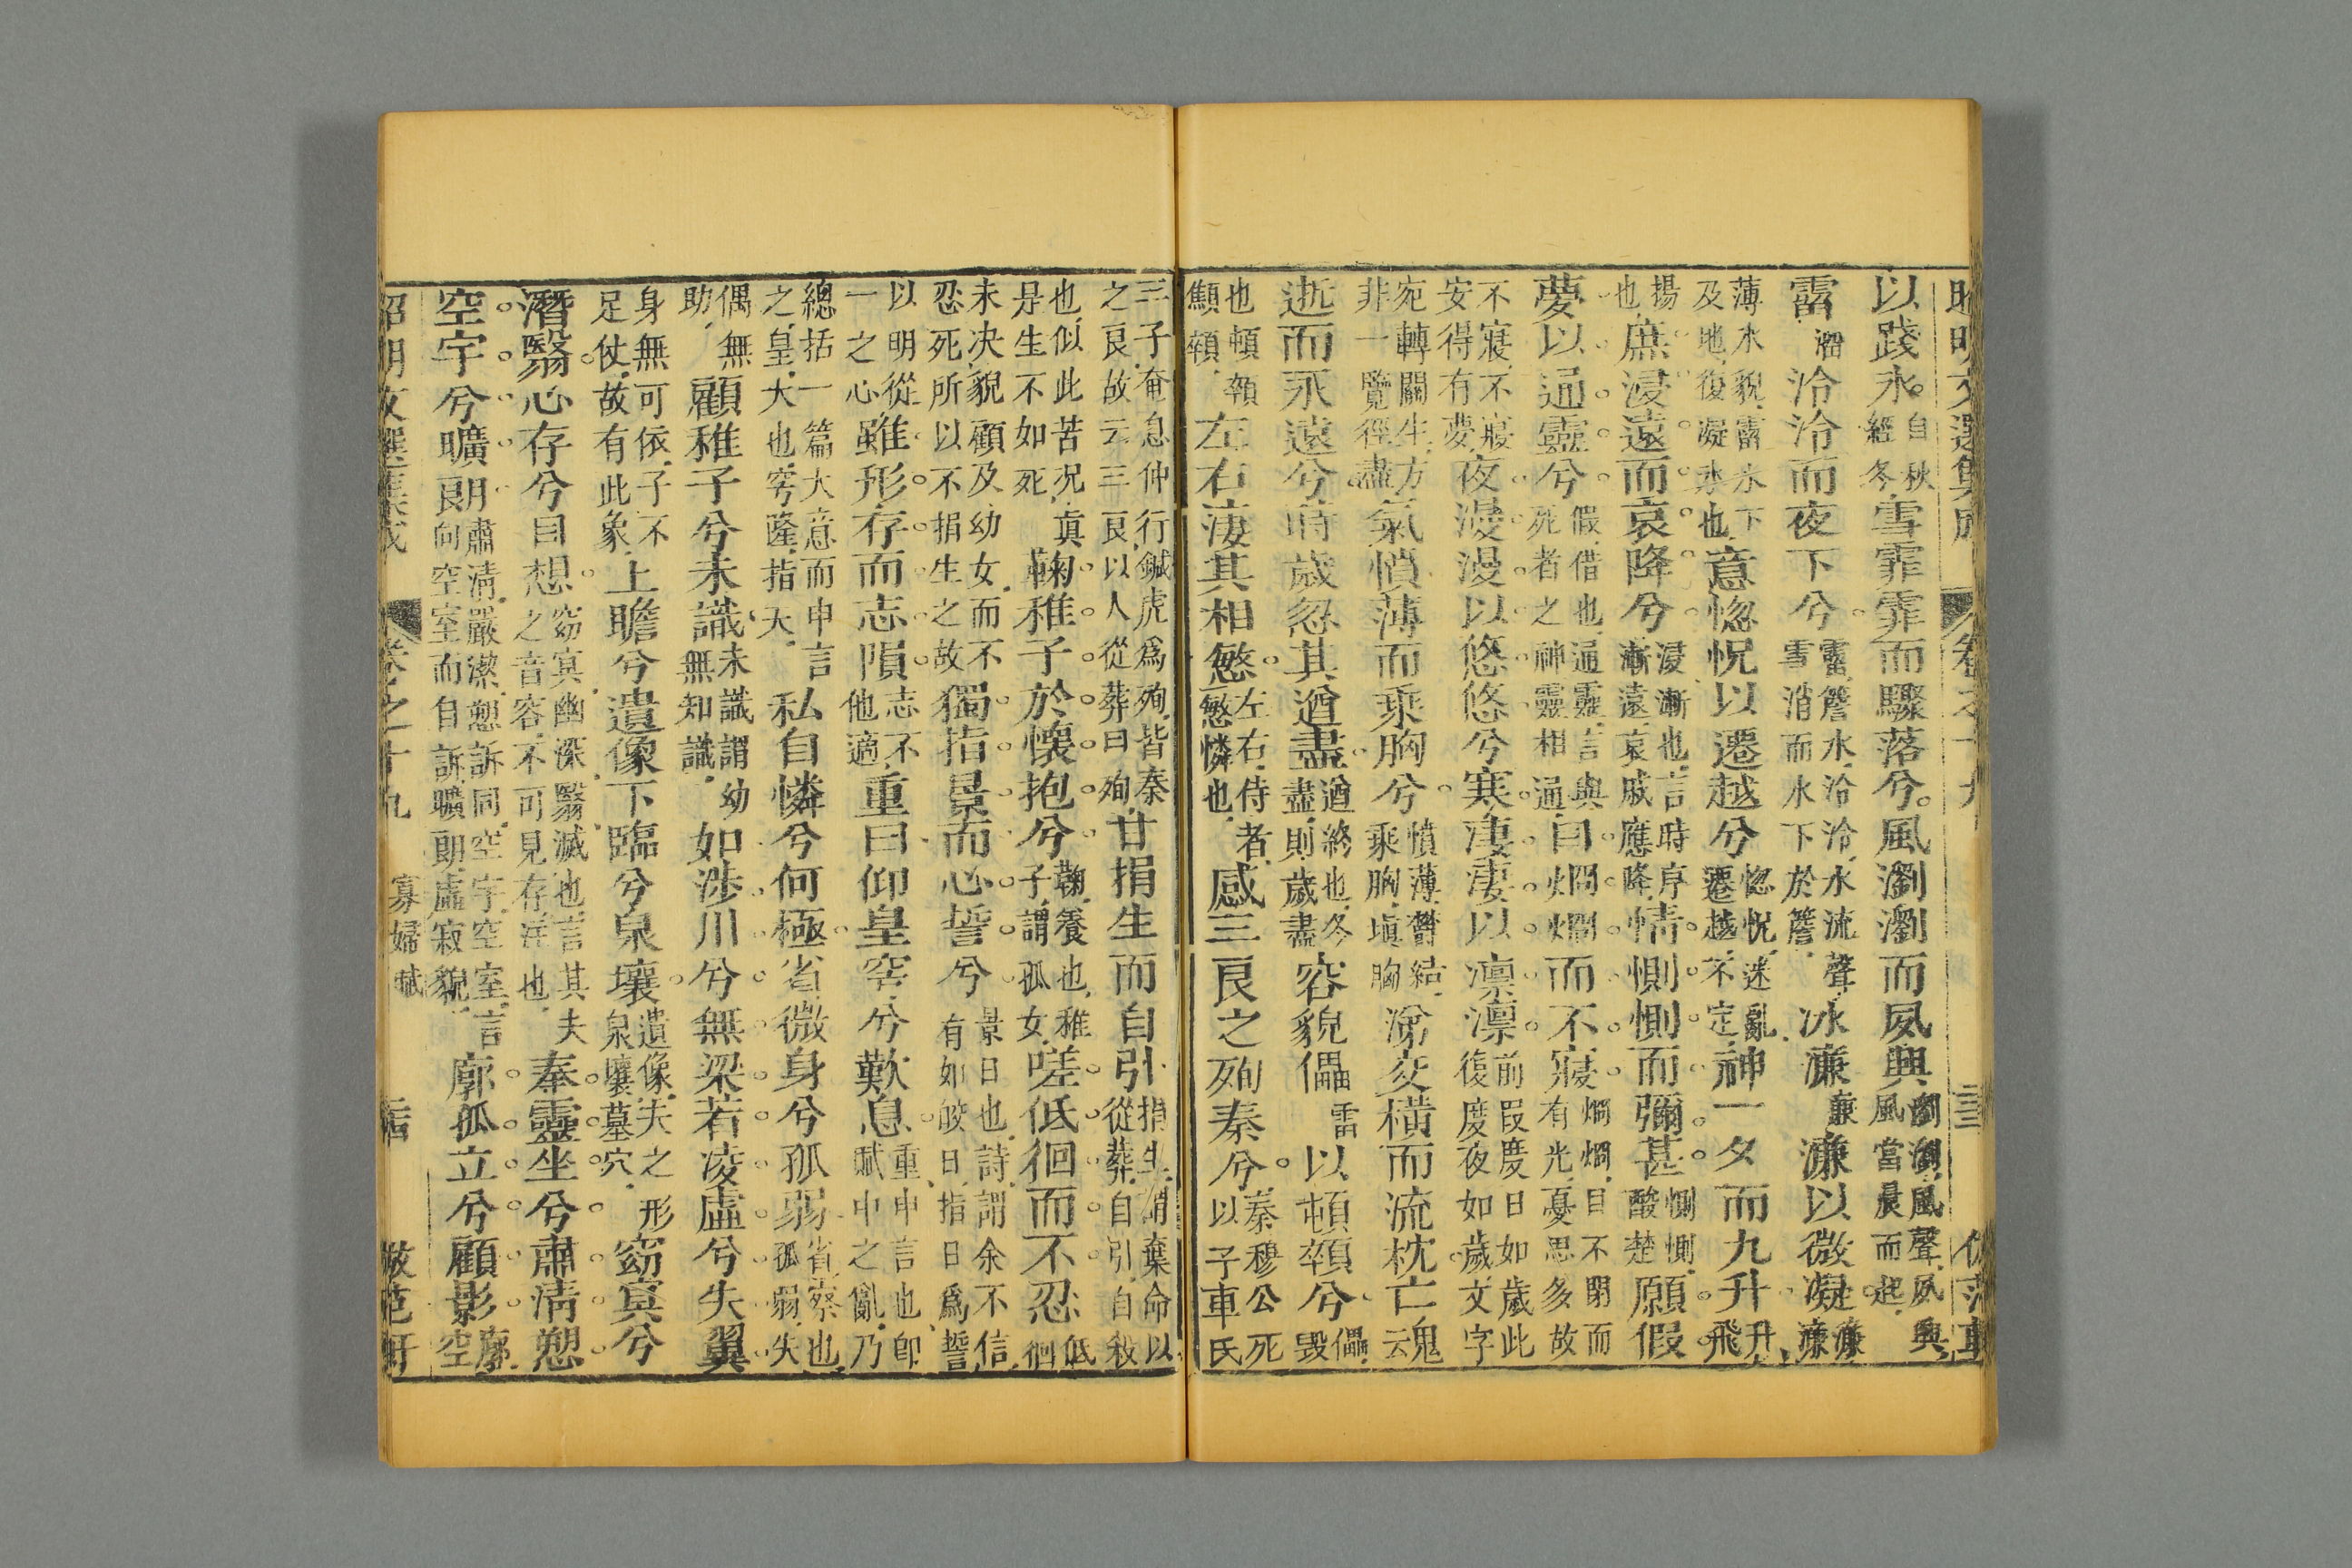 昭明文選集成 卷之十九
以踐氷自秋經冬雪霏霏而驟落兮風瀏瀏而夙興瀏瀏風聲夙興風當晨而起
霤溜泠泠而夜下兮霤簷水泠泠水流聲雪消而水下於簷冰濂亷濂以微凝濂濂
薄氷貌霤氷下及地復凝氷也意惚怳以遷越兮惚怳迷亂遷越不定神一夕而九升升飛
揚也庶浸遠而哀降兮浸漸也言時序漸遠哀戚應降情惻惻而彌甚惻惻酸楚願假
夢以通靈兮假借也通靈言與死者之神靈相通目烱烱而不寢烱烱目不閉而有光憂思多故
不寢不寢安得有夢夜漫漫以悠悠兮寒淒淒以凛凛前叚度日如歲此復度夜如歲文字
宛轉關生方非一覽徑盡氣憤薄而乘胸兮憤薄鬱結乘胸塡胸涕交橫而流枕亡魂
逝而永遠兮時歲忽其遒盡遒終也冬盡則歲盡容貌儡雷以頓顇兮儡毀
也頓顇顦顇左右淒其相慜左右侍者慜憐也感三良之殉秦兮秦穆公死以子車氏
三子奄息仲行鍼虎爲殉皆秦之良故云三良以人從葬曰殉甘捐生而自引捐生謂棄命以從葬自引自殺
也似此苦况眞是生不如死鞠稚子於懷抱兮鞠養也稚子謂孤女嗟低徊而不忍低徊
未决貌顧及幼女而不忍死所以不捐生之故獨指景而心誓兮景日也詩謂余不信有如皎日指日爲誓
以明從一之心雖形存而志隕志不他適重曰仰皇穹兮歎息重申言也卽賦中之亂乃
總括一篇大意而申言之皇大也穹隆指天私自憐兮何極省微身兮孤弱省察也孤弱失
偶無無助顧稚子兮未識未識謂幼無知識如涉川兮無梁若凌虛兮失翼
身無可依子不足仗故有此象上瞻兮遺像下臨兮泉壤遺像夫之形泉壤墓穴窈寞兮
潛翳心存兮目想窈寞幽深翳滅也言其夫之音容不可見存注也奉靈坐兮肅淸愬
空宇兮曠朗肅淸嚴潔愬訴同空宇空室言向空室而自訴曠朗虛寂貌廓孤立兮顧影廓空
昭明文選集成 卷之十九 寡婦賦